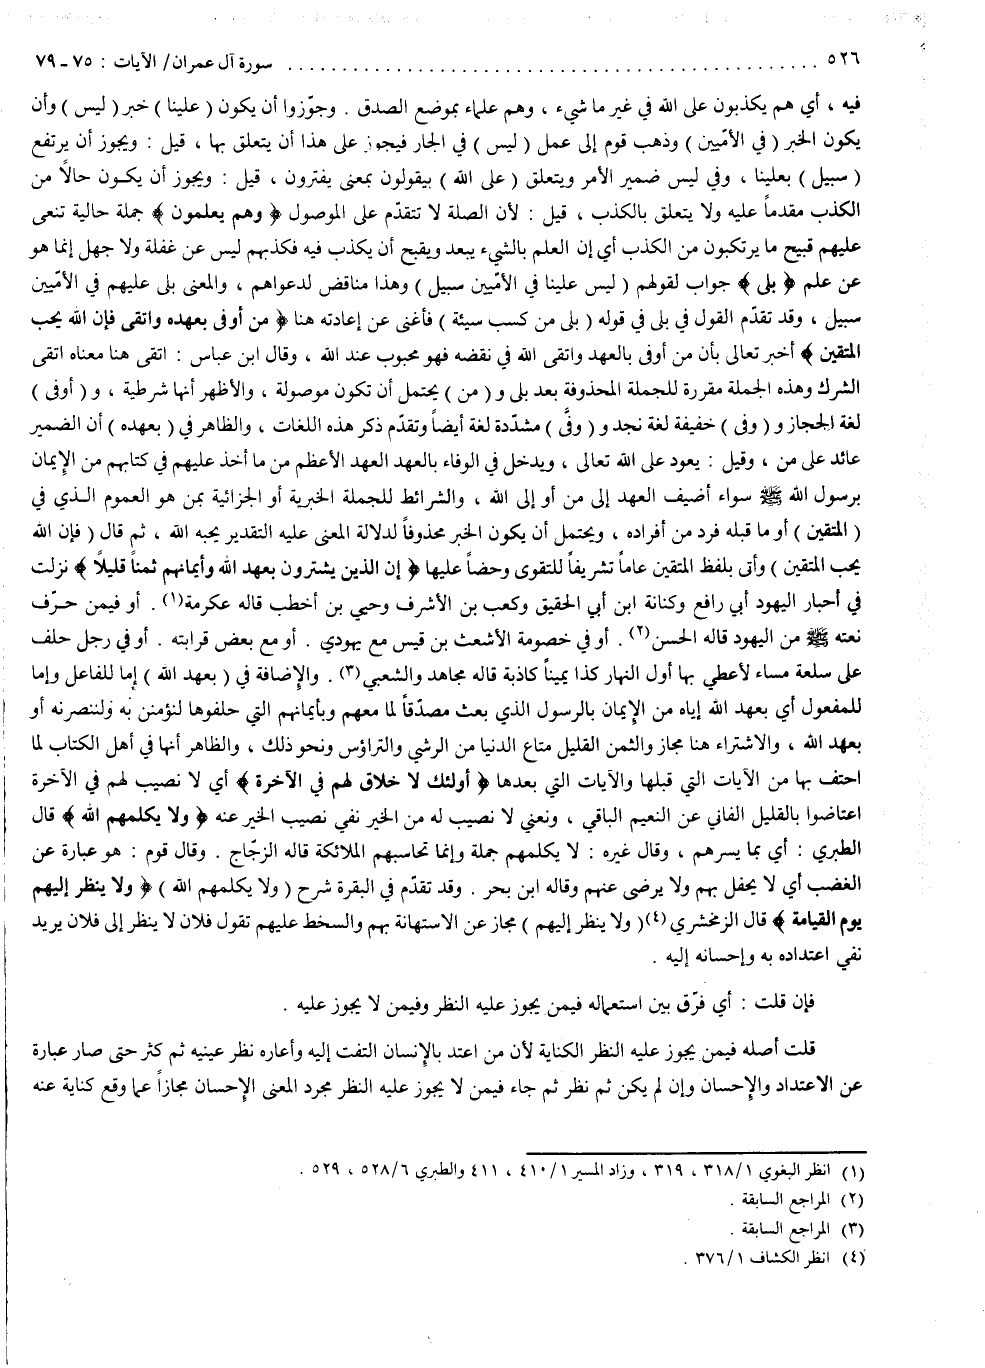 ٥٢٦ ........................................ سورة آل عمران/ الآيات : ٧٥ ـ ٧٩
فيه ، أي هم يكذبون على الله في غير ما شيء ، وهم علماء بموضع الصدق . وجوّزوا أن يكون ( علينا ) خبر ( ليس ) وأن
يكون الخبر ( في الأمّيين ) وذهب قوم إلى عمل ( ليس ) في الجار فيجوز على هذا أن يتعلق بها ، قيل : ويجوز أن يرتفع
( سبيل ) بعلينا ، وفي ليس ضمير الأمر ويتعلق ( على الله ) بيقولون بمعنى يفترون ، قيل : ويجوز أن يكون حالاً من
الكذب مقدماً عليه ولا يتعلق بالكذب ، قيل : لأن الصلة لا تتقدّم على الموصول ﴿ وهم يعلمون ﴾ جملة حالية تنعى
عليهم قبيح ما يرتكبون من الكذب أي إن العلم بالشيء يبعد ويقبح أن يكذب فيه فكذبهم ليس عن غفلة ولا جهل إنما هو
عن علم ﴿ بلى ﴾ جواب لقولهم ( ليس علينا في الأمّيين سبيل ) وهذا مناقض لدعواهم ، والمعنى بلى عليهم في الأمّيين
سبيل ، وقد تقدّم القول في بلى في قوله ( بلى من كسب سيئة ) فأغنى عن إعادته هنا ﴿ من أوفى بعهده واتقى فإن الله يحب
المتقين ﴾ أخبر تعالى بأن من أوفى بالعهد واتقى الله في نقضه فهو محبوب عند الله ، وقال ابن عباس : اتقى هنا معناه اتقى
الشرك وهذه الجملة مقررة للجملة المحذوفة بعد بلى و ( من ) يحتمل أن تكون موصولة ، والأظهر أنها شرطية ، و ( أوفى )
لغة الحجاز و ( وفى ) خفيفة لغة نجد و ( وفَّى ) مشدّدة لغة أيضاً وتقدّم ذكر هذه اللغات ، والظاهر في ( بعهده ) أن الضمير
عائد على من ، وقيل : يعود على الله تعالى ، ويدخل في الوفاء بالعهد العهد الأعظم من ما أخذ عليهم في كتابهم من الإيمان
برسول الله ﷺ سواء أضيف العهد إلى من أو إلى الله ، والشرائط للجملة الخبرية أو الجزائية بمن هو العموم الذي في
( المتقين ) أو ما قبله فرد من أفراده ، ويحتمل أن يكون الخبر محذوفاً لدلالة المعنى عليه التقدير يحبه الله ، ثم قال ( فإن الله
يحب المتقين ) وأتى بلفظ المتقين عاماً تشريفاً للتقوى وحضاً عليها ﴿ إن الذين يشترون بعهد الله وأيمانهم ثمناً قليلاً ﴾ نزلت
في أحبار اليهود أبي رافع وكنانة ابن أبي الحقيق وكعب بن الأشرف وحيي بن أخطب قاله عكرمة(١) . أو فيمن حرّف
نعته ﷺ من اليهود قاله الحسن(٢) . أو في خصومة الأشعث بن قيس مع يهودي . أو مع بعض قرابته . أو في رجل حلف
على سلعة مساء لأعطي بها أول النهار كذا يميناً كاذبة قاله مجاهد والشعبي(٣) . والإضافة في ( بعهد الله ) إما للفاعل وإما
للمفعول أي بعهد الله إياه من الإيمان بالرسول الذي بعث مصدّقاً لما معهم وبأيمانهم التي حلفوها لنؤمنن به ولننصرنه أو
بعهد الله ، والاشتراء هنا مجاز والثمن القليل متاع الدنيا من الرشي والتراؤس ونحو ذلك ، والظاهر أنها في أهل الكتاب لما
احتف بها من الآيات التي قبلها والآيات التي بعدها ﴿ أولئك لا خلاق لهم في الآخرة ﴾ أي لا نصيب لهم في الآخرة
اعتاضوا بالقليل الفاني عن النعيم الباقي ، ونعني لا نصيب له من الخير نفي نصيب الخير عنه ﴿ ولا يكلمهم الله ﴾ قال
الطبري : أي بما يسرهم ، وقال غيره : لا يكلمهم جملة وإنما تحاسبهم الملائكة قاله الزجّاج . وقال قوم : هو عبارة عن
الغضب أي لا يحفل بهم ولا يرضى عنهم وقاله ابن بحر . وقد تقدّم في البقرة شرح ( ولا يكلمهم الله ) ﴿ ولا ينظر إليهم
يوم القيامة ﴾ قال الزمخشري (٤)( ولا ينظر إليهم ) مجاز عن الاستهانة بهم والسخط عليهم تقول فلان لا ينظر إلى فلان يريد
نفي اعتداده به وإحسانه إليه .
فإن قلت : أي فرّق بين استعماله فيمن يجوز عليه النظر وفيمن لا يجوز عليه .
قلت أصله فيمن يجوز عليه النظر الكناية لأن من اعتد بالإنسان التفت إليه وأعاره نظر عينيه ثم كثر حتى صار عبارة
عن الاعتداد والإحسان وإن لم يكن ثم نظر ثم جاء فيمن لا يجوز عليه النظر مجرد المعنى الإحسان مجازاً عما وقع كناية عنه
(١) انظر البغوي ٣١٨/١ ، ٣١٩ ، وزاد المسير ٤١٠/١ ، ٤١١ والطبري ٥٢٨/٦ ، ٥٢٩ .
(٢) المراجع السابقة .
(٣) المراجع السابقة .
(٤) انظر الكشاف ٣٧٦/١ .